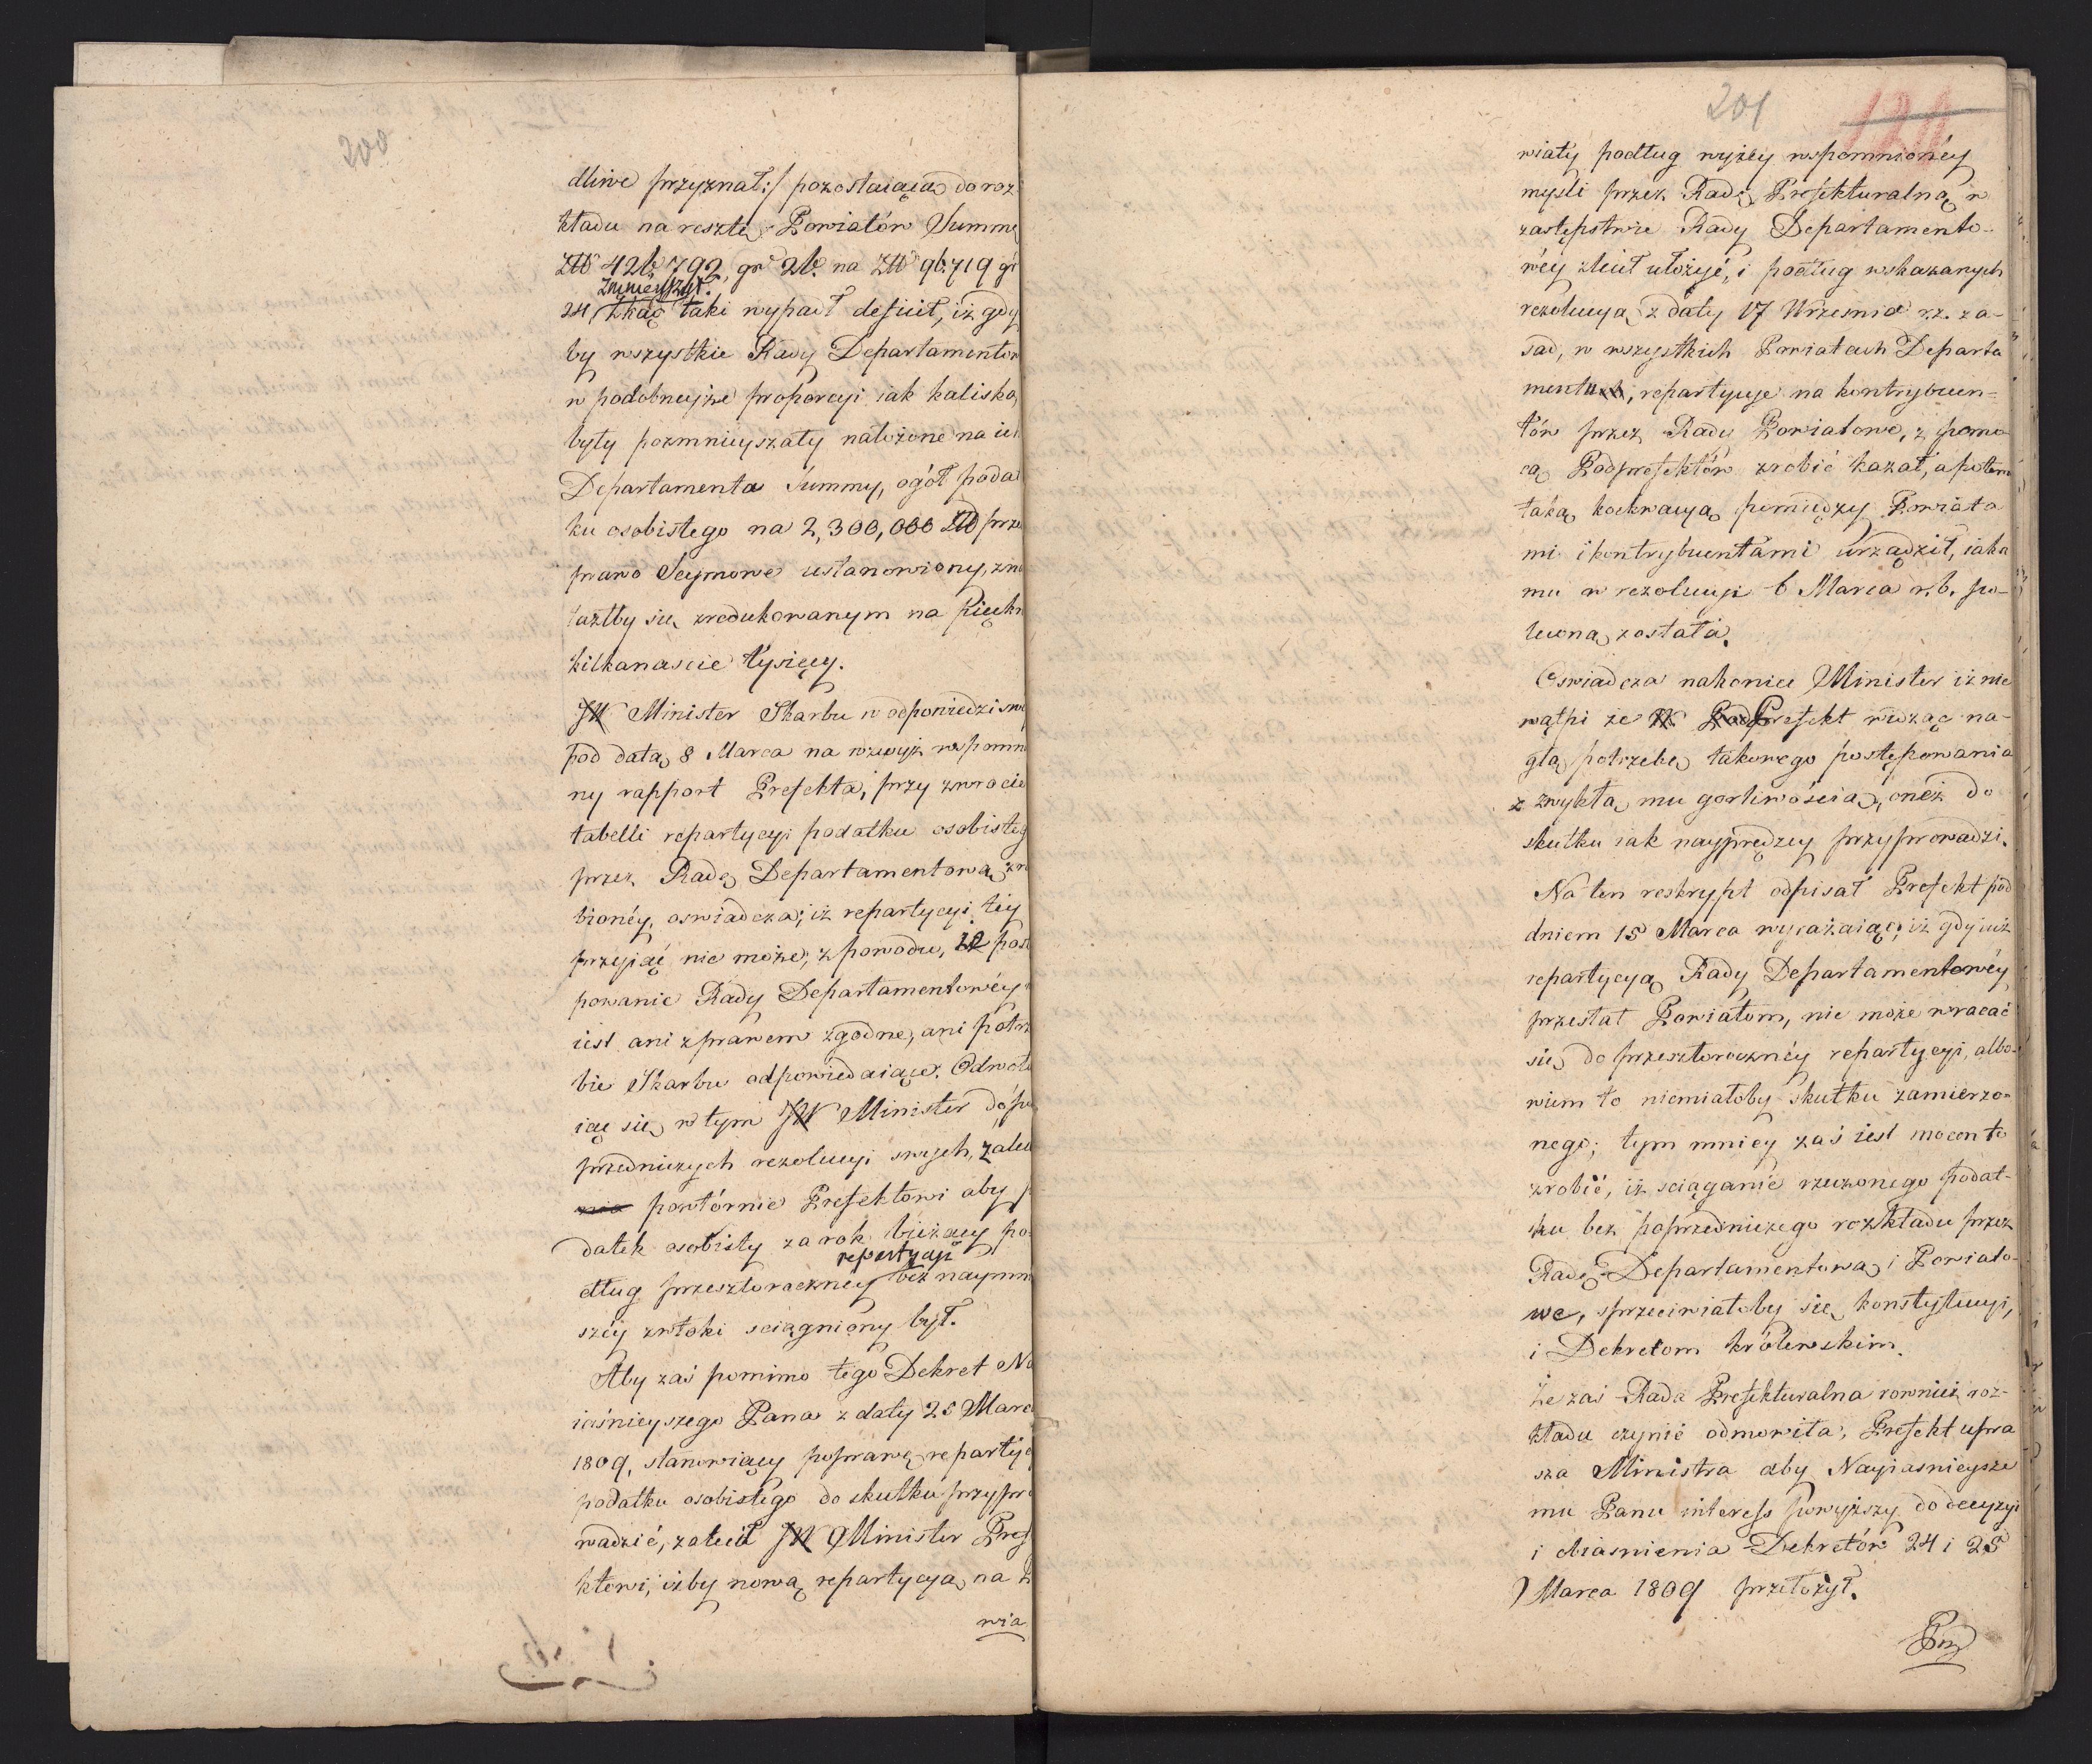 200
dliwe przyznał:/ pozostaiącą do roz
kładu na resztę Powiatów Summę
Złł 426,792, gr 26. na Złł 96.719 gr
zmnieyszył.
24, Zkąd taki wypadł deficit, iż gdy
by wszystkie Rady Departamentow
w podobneyże proporcyi iak kaliska,
były pozmnieyszały nałożone na ich
Departamenta Summy, ogół podat
ku osobistego na 2,300,000 Złł prze
prawo Seymowe ustanowiony, zna
lazłby się zredukowanym na Pięćkr
kilkanascie tysięcy.
JW Minister Skarbu w odpowiedzi swe
pod datą 8 Marca na wzwyż wspomn
ny rapport Prefekta, przy zwrocie
tabelli repartycyi podatku osobisteg
przez Radę Departamentową zro
bionéy, oswiadcza; iż repartycyi téy
przyiąć nie może, z powodu, iż post
powanie Rady Departamentowéy
iest ani z prawem zgodne, ani potrz
bie Skarbu odpowiedaiące. Odwołu
iąc się w tym JW Minister do po
przedniczych rezolucyi swych, zalec
powtórnie Prefektowi aby p
datek osobisty za rok bieżący po
repartycyi
dług przeszłorocznéy bez naymn
széy zwłoki sciągniony był.
Aby zaś pomimo tego Dekret Na
iaśnieyszego Pana z daty 25 Marc
1809, stanowiący poprawę repartyc
podatku osobistego do skutku przypro
wadzić, zalecił JW Minister Pref
ktowi, iżby nową repartycyą na P
wia
201
wiaty podług wyżéy wspomnionéy
myśli przez Radę Prefekturalną w
zastępstwie Rady Departamento-
wéy zlecił ułożyć, i podług wskazanych
rezolucyą z daty 17 Września r.z. za-
sad, w wszystkich Powiatach Departa
mentu, repartycye na kontrybuen=
tów przez Rady Powiatowe, z pomo
cą Podprefektów zrobić kazał, a potem
taką koekwacyą pomiędzy Powiata
mi i kontrybuentami urządził, iaka
mu w rezolucyi 6 Marca r.b. po-
lecona została.
Oswiadcza nakoniec Minister iż nie
wątpi że Prefekt widząc na-
głą potrzebę takowego postępowania
z zwykłą mu gorliwościa, onéż do
skutku iak nayprędzey przyprowadzi.
Na ten reskrypt odpisał Prefekt pod
dniem 15 Marca wyrażaiąc, iż gdy iuż
repartycyą Rady Departamentowéy
przesłał Powiatom, nie może wracać
się do przeszłorocznéy repartycyi, albo-
wiem to niemiałoby skutku zamierzo-
nego; tym mniey zaś iest mocen to
zrobić, iż sciąganie rzeczonego podat-
ku bez poprzedniczego rozkładu przez
Radę Departamentową i Powiato-
we, sprzeciwiałoby się konstytucyi,
i Dekretom królewskim.
Że zaś Rada Prefekturalna rownież roz-
kładu czynić odmowiła, Prefekt upra
sza Ministra aby Nayiasnieysze
mu Panu interess powyższy do decyzyi
i obiasnienia Dekretów 24 i 25
Marca 1809 przełożył.